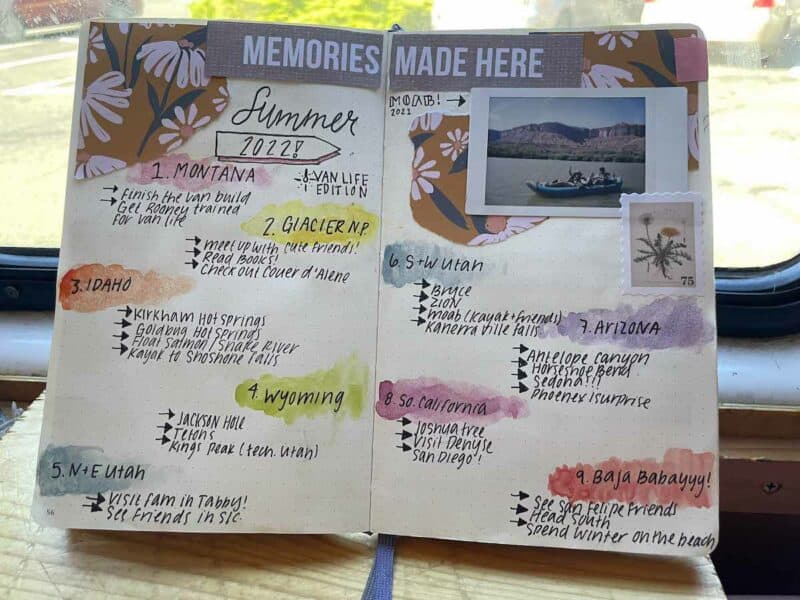 MEMORIES MADE HERE
Summer
2022!
VAN LIFE
EDITION
1. MONTANA
Finish the van build
Get Rooney trained
for van life
2. GLACIER N.P.
meet up with cute friends!
Read Books!
Check out Couer d'Alene
3. IDAHO
Kirkham Hot Springs
Goldbug Hot Springs
Float Salmon/Snake River
Kayak to Shoshone Falls
4. Wyoming
JACKSON HOLE
Tetons
Kings Peak (tech. Utah)
5. N+E Utah
Visit fam in Tabby!
See friends in SLC
56
MOAB!
2021
75
6. S+W Utah
Bryce
ZION
Moab (Kayak+friends)
Kanerra ville falls
7. ARIZONA
Antelope Canyon
Horseshoe Bend
Sedona!!!
Phoenex! surprise
8. So. California
Joshua tree
Visit Denyse
San Diego!
9. Baja Babayyy!
See San Felipe Friends
Head South
Spend winter on the beach